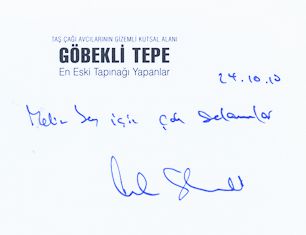 TAŞ ÇAĞI AVCILARININ GİZEMLİ KUTSAL ALANI
GÖBEKLİ TEPE
En Eski Tapınağı Yapanlar
24.10.10
Metin Bey için çok selamlar